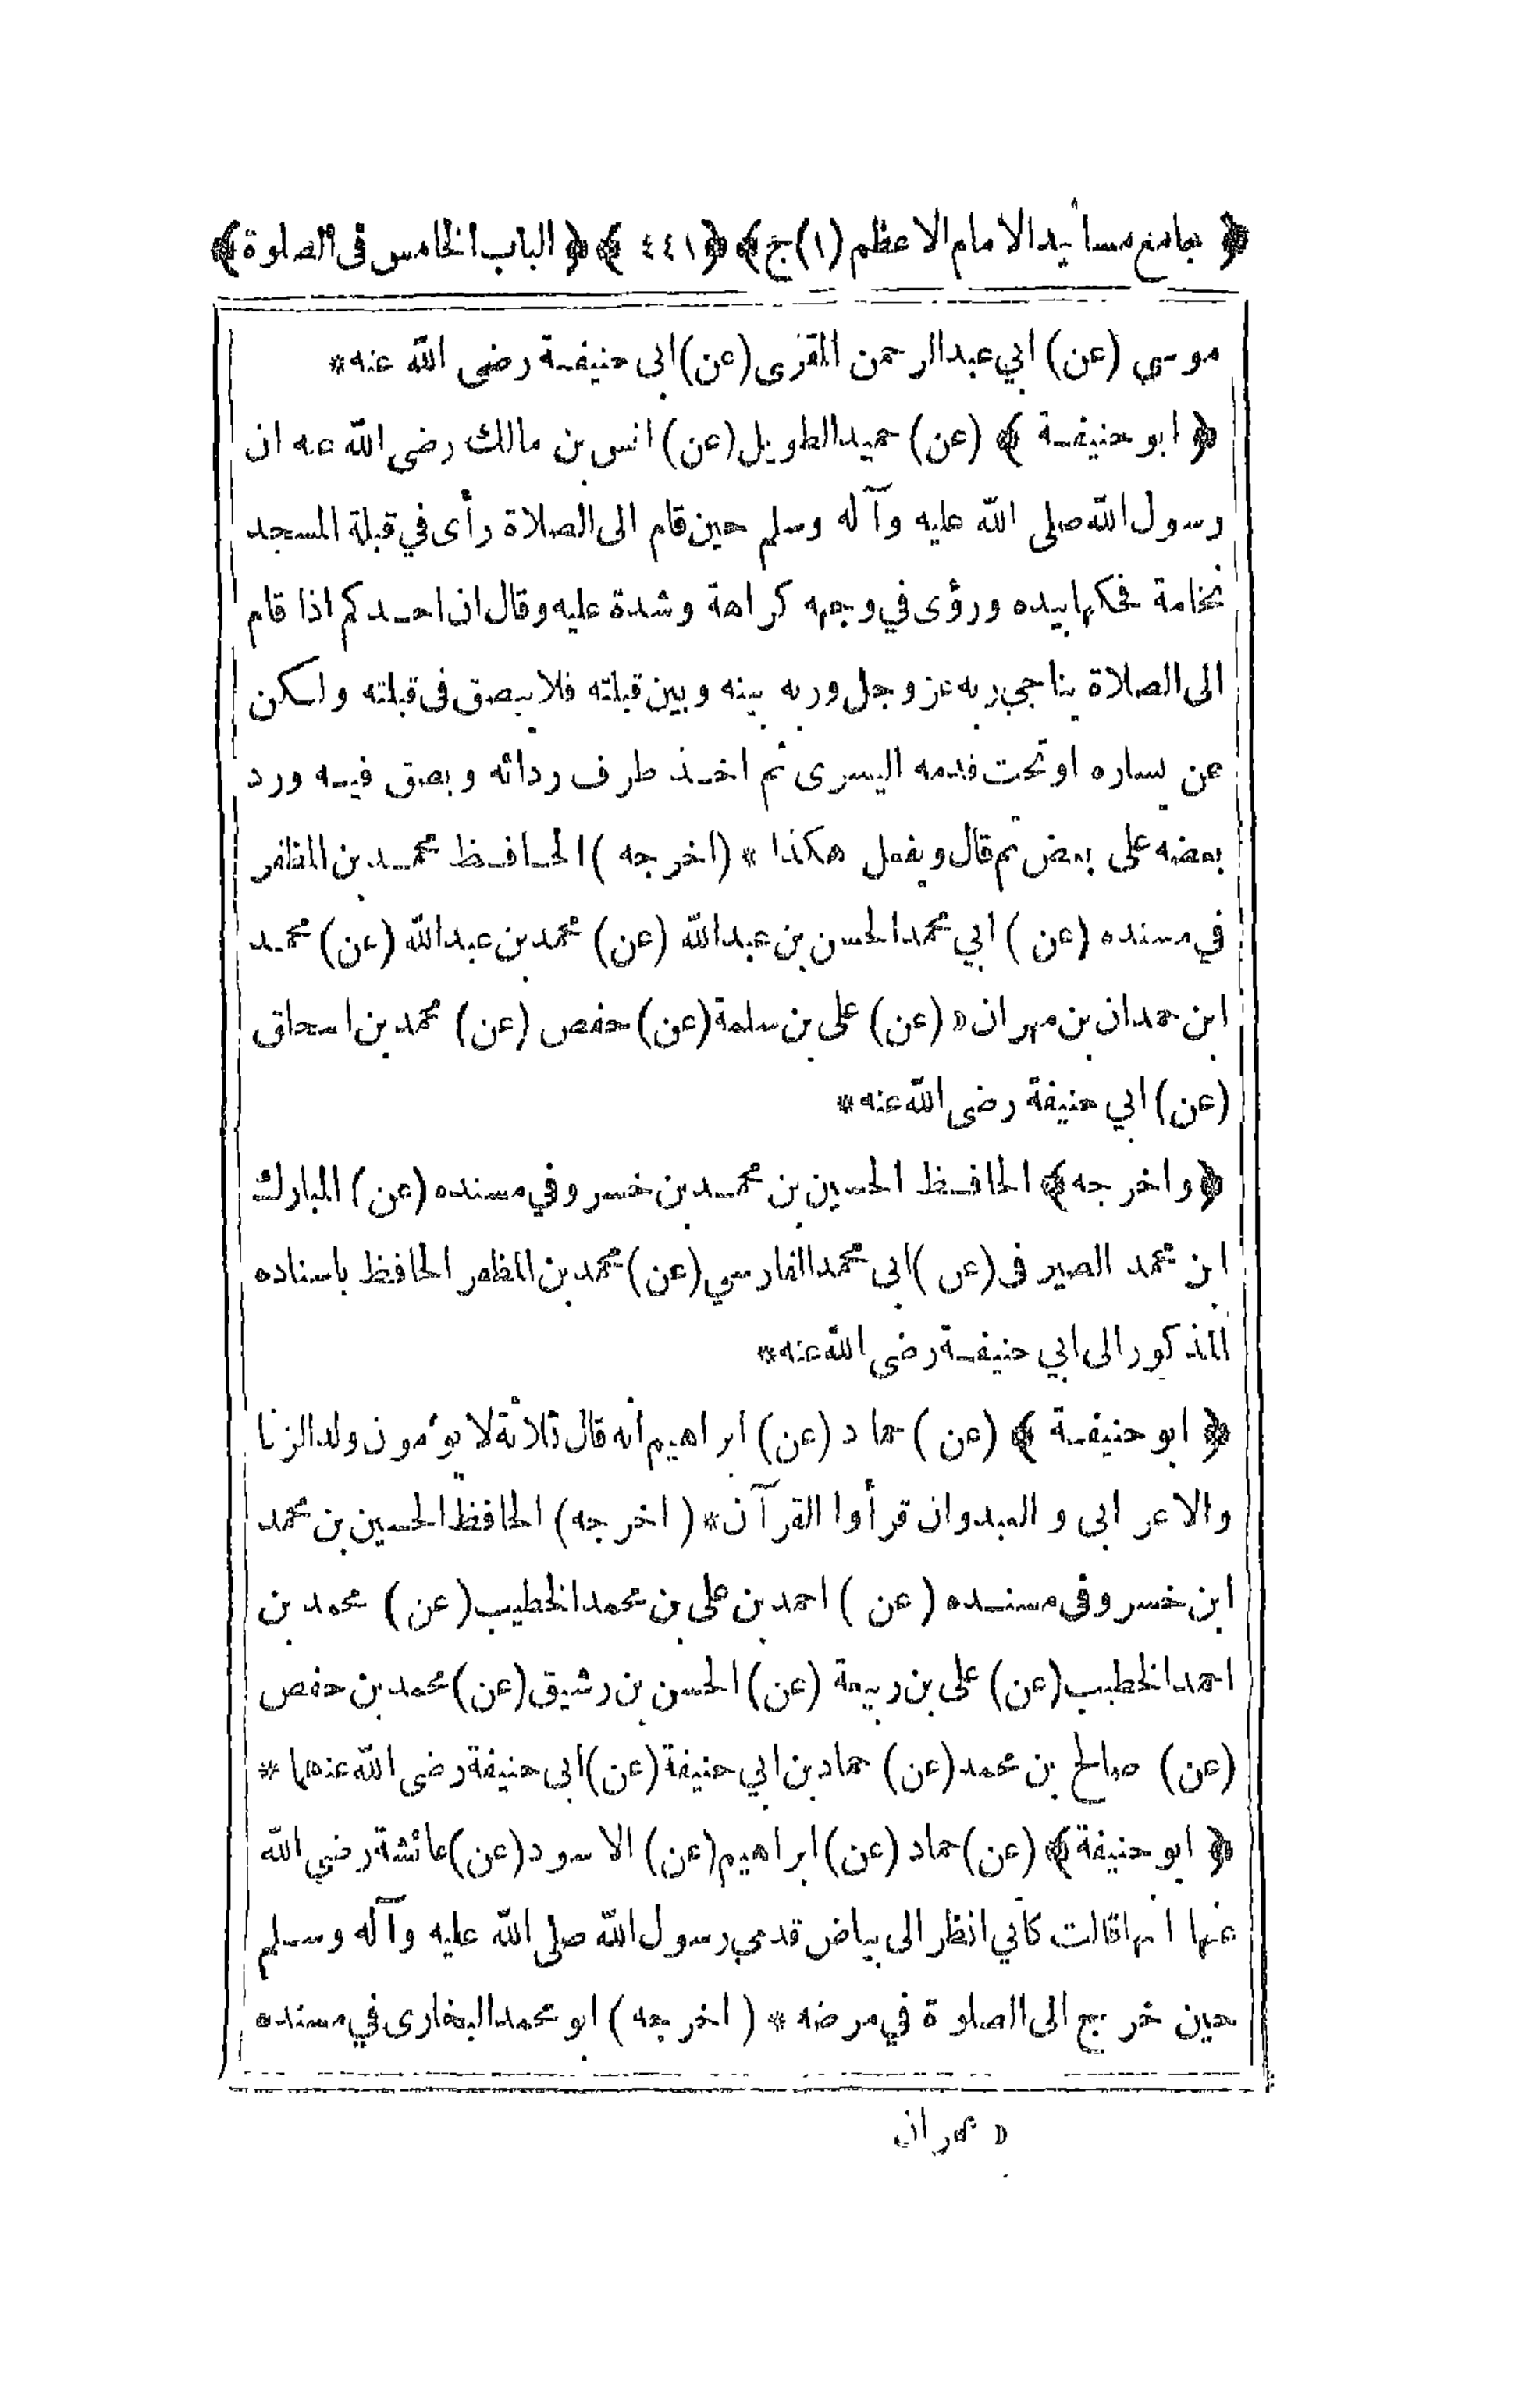 ﴿ جامع مسانيد الامام الاعظم (١) ج﴾ ﴿ ٤٤١ ﴾ ﴿ الباب الخامس فى الصلوة ﴾
موسى (عن) ابي عبدالرحمن المقرى (عن) ابى حنيفة رضى الله عنه *
﴿ ابو حنيفة ﴾ (عن) حميد الطويل (عن) انس بن مالك رضى الله عنه ان
رسول الله صلى الله عليه وآله وسلم حين قام الى الصلاة رأى في قبلة المسجد
نخامة فحكها بيده ورؤى في وجهه كراهة وشدة عليه وقال ان احدكم اذا قام
الى الصلاة يناجي ربه عز وجل وربه بينه وبين قبلته فلا يبصق فى قبلته ولكن
عن يساره او تحت قدمه اليسرى ثم اخذ طرف ردائه وبصق فيه ورد
بعضه على بعض ثم قال ويفعل هكذا * (اخرجه) الحافظ محمد بن المظفر
في مسنده (عن) ابي محمد الحسن بن عبدالله (عن) محمد بن عبدالله (عن) محمد
ابن حمدان بن مهران ﴿ (عن) على بن سلمة (عن) حفص (عن) محمد بن اسحاق
(عن) ابي حنيفة رضى الله عنه *
﴿ واخرجه ﴾ الحافظ الحسين بن محمد بن خسرو في مسنده (عن) المبارك
ابن محمد الصيرفى (عن) ابى محمد الفارسي (عن) محمد بن المظفر الحافظ باسناده
المذكور الى ابي حنيفة رضى الله عنه *
﴿ ابو حنيفة ﴾ (عن) حماد (عن) ابراهيم انه قال ثلاثة لا يؤمون ولد الزنا
والاعرابى والعبد وان قرأوا القرآن * (اخرجه) الحافظ الحسين بن محمد
ابن خسرو فى مسنده (عن) احمد بن على بن محمد الخطيب (عن) محمد بن
احمد الخطيب (عن) على بن ربيعة (عن) الحسن بن رشيق (عن) محمد بن حفص
(عن) صالح بن محمد (عن) حماد بن ابي حنيفة (عن) ابى حنيفة رضى الله عنهما *
﴿ ابو حنيفة ﴾ (عن) حماد (عن) ابراهيم (عن) الاسود (عن) عائشة رضي الله
عنها انها قالت كأني انظر الى بياض قدمي رسول الله صلى الله عليه وآله وسلم
حين خرج الى الصلوة في مرضه * (اخرجه) ابو محمد البخارى في مسنده